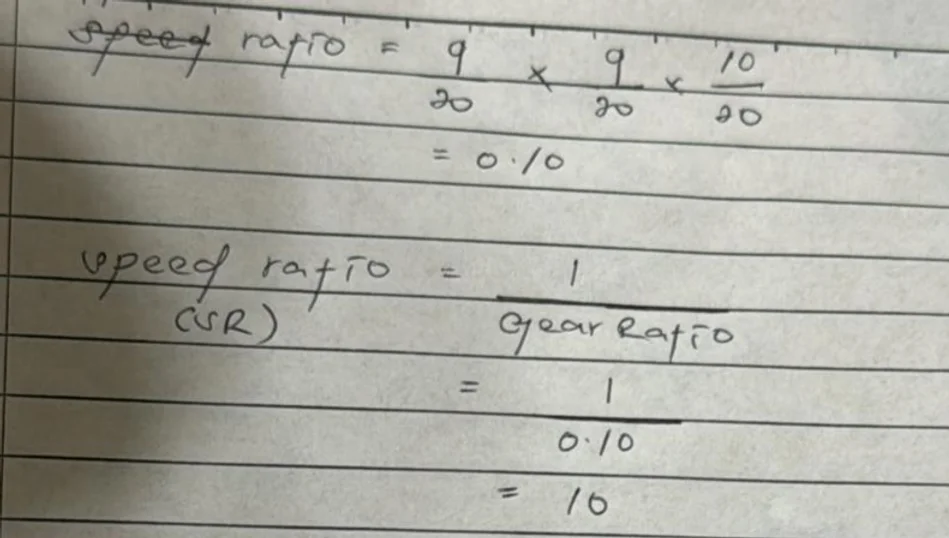 speed ratio = 9/20 × 9/20 × 10/20
= 0.10
speed ratio = 1/Gear Ratio
(SR)
= 1/0.10
= 10